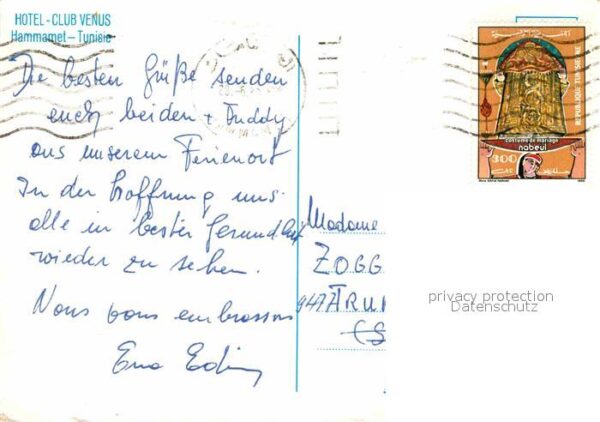 HOTEL - CLUB VENUS
Hammamet – Tunisie
Die besten Grüße senden
euch beiden + Duddy
aus unserem Ferienort
In der Hoffnung uns
alle in bester Gesundheit
wieder zu sehen.
Nous vous embrassons
REPUBLIQUE TUNISIENNE
costume de mariage
nabeul
300
Madame
ZOGG
privacy protection
Datenschutz